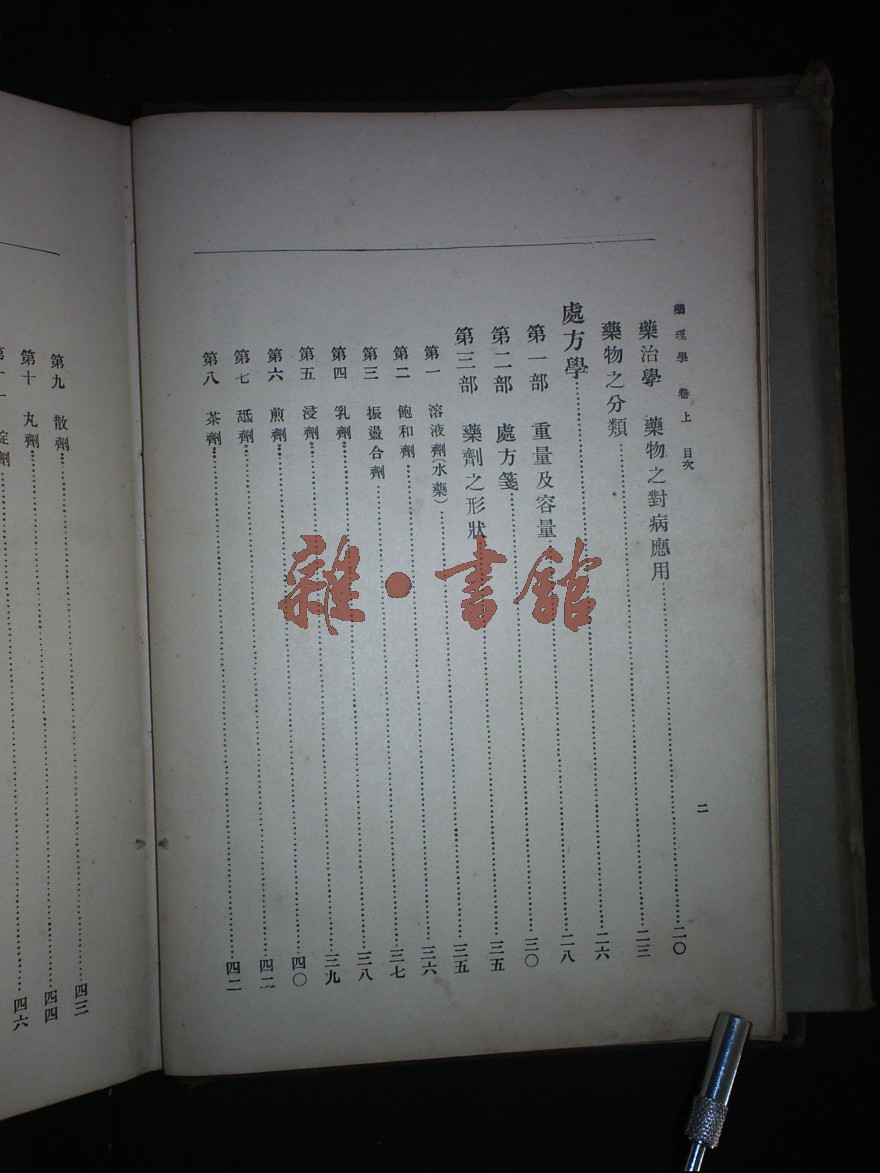 藥理學 卷上 目次 二
藥治學 藥物之對病應用……二〇
藥物之分類……二三
處方學……二六
第一部 重量及容量……二八
第二部 處方箋……三〇
第三部 藥劑之形狀……三五
第一 溶液劑(水藥)……三五
第二 飽和劑……三六
第三 振盪合劑……三七
第四 乳劑……三八
第五 浸劑……三九
第六 煎劑……四〇
第七 舐劑……四二
第八 茶劑……四二
第九 散劑……四三
第十 丸劑……四四
第十一 錠劑……四六
雜·書館